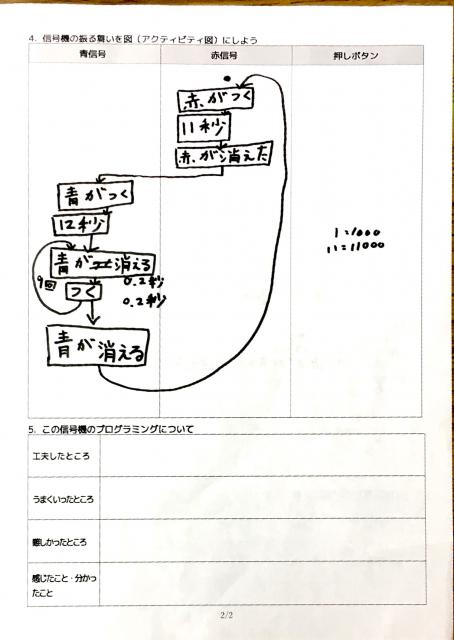 4. 信号機の振る舞いを図（アクティビティ図）にしよう
青信号 赤信号 押しボタン
赤がつく
11秒
赤が消えた
青がつく
12秒
青が消える
0.2秒
9回
つく
0.2秒
青が消える
1=1000
11=11000
5. この信号機のプログラミングについて
工夫したところ
うまくいったところ
難しかったところ
感じたこと・分かっ
たこと
2/2